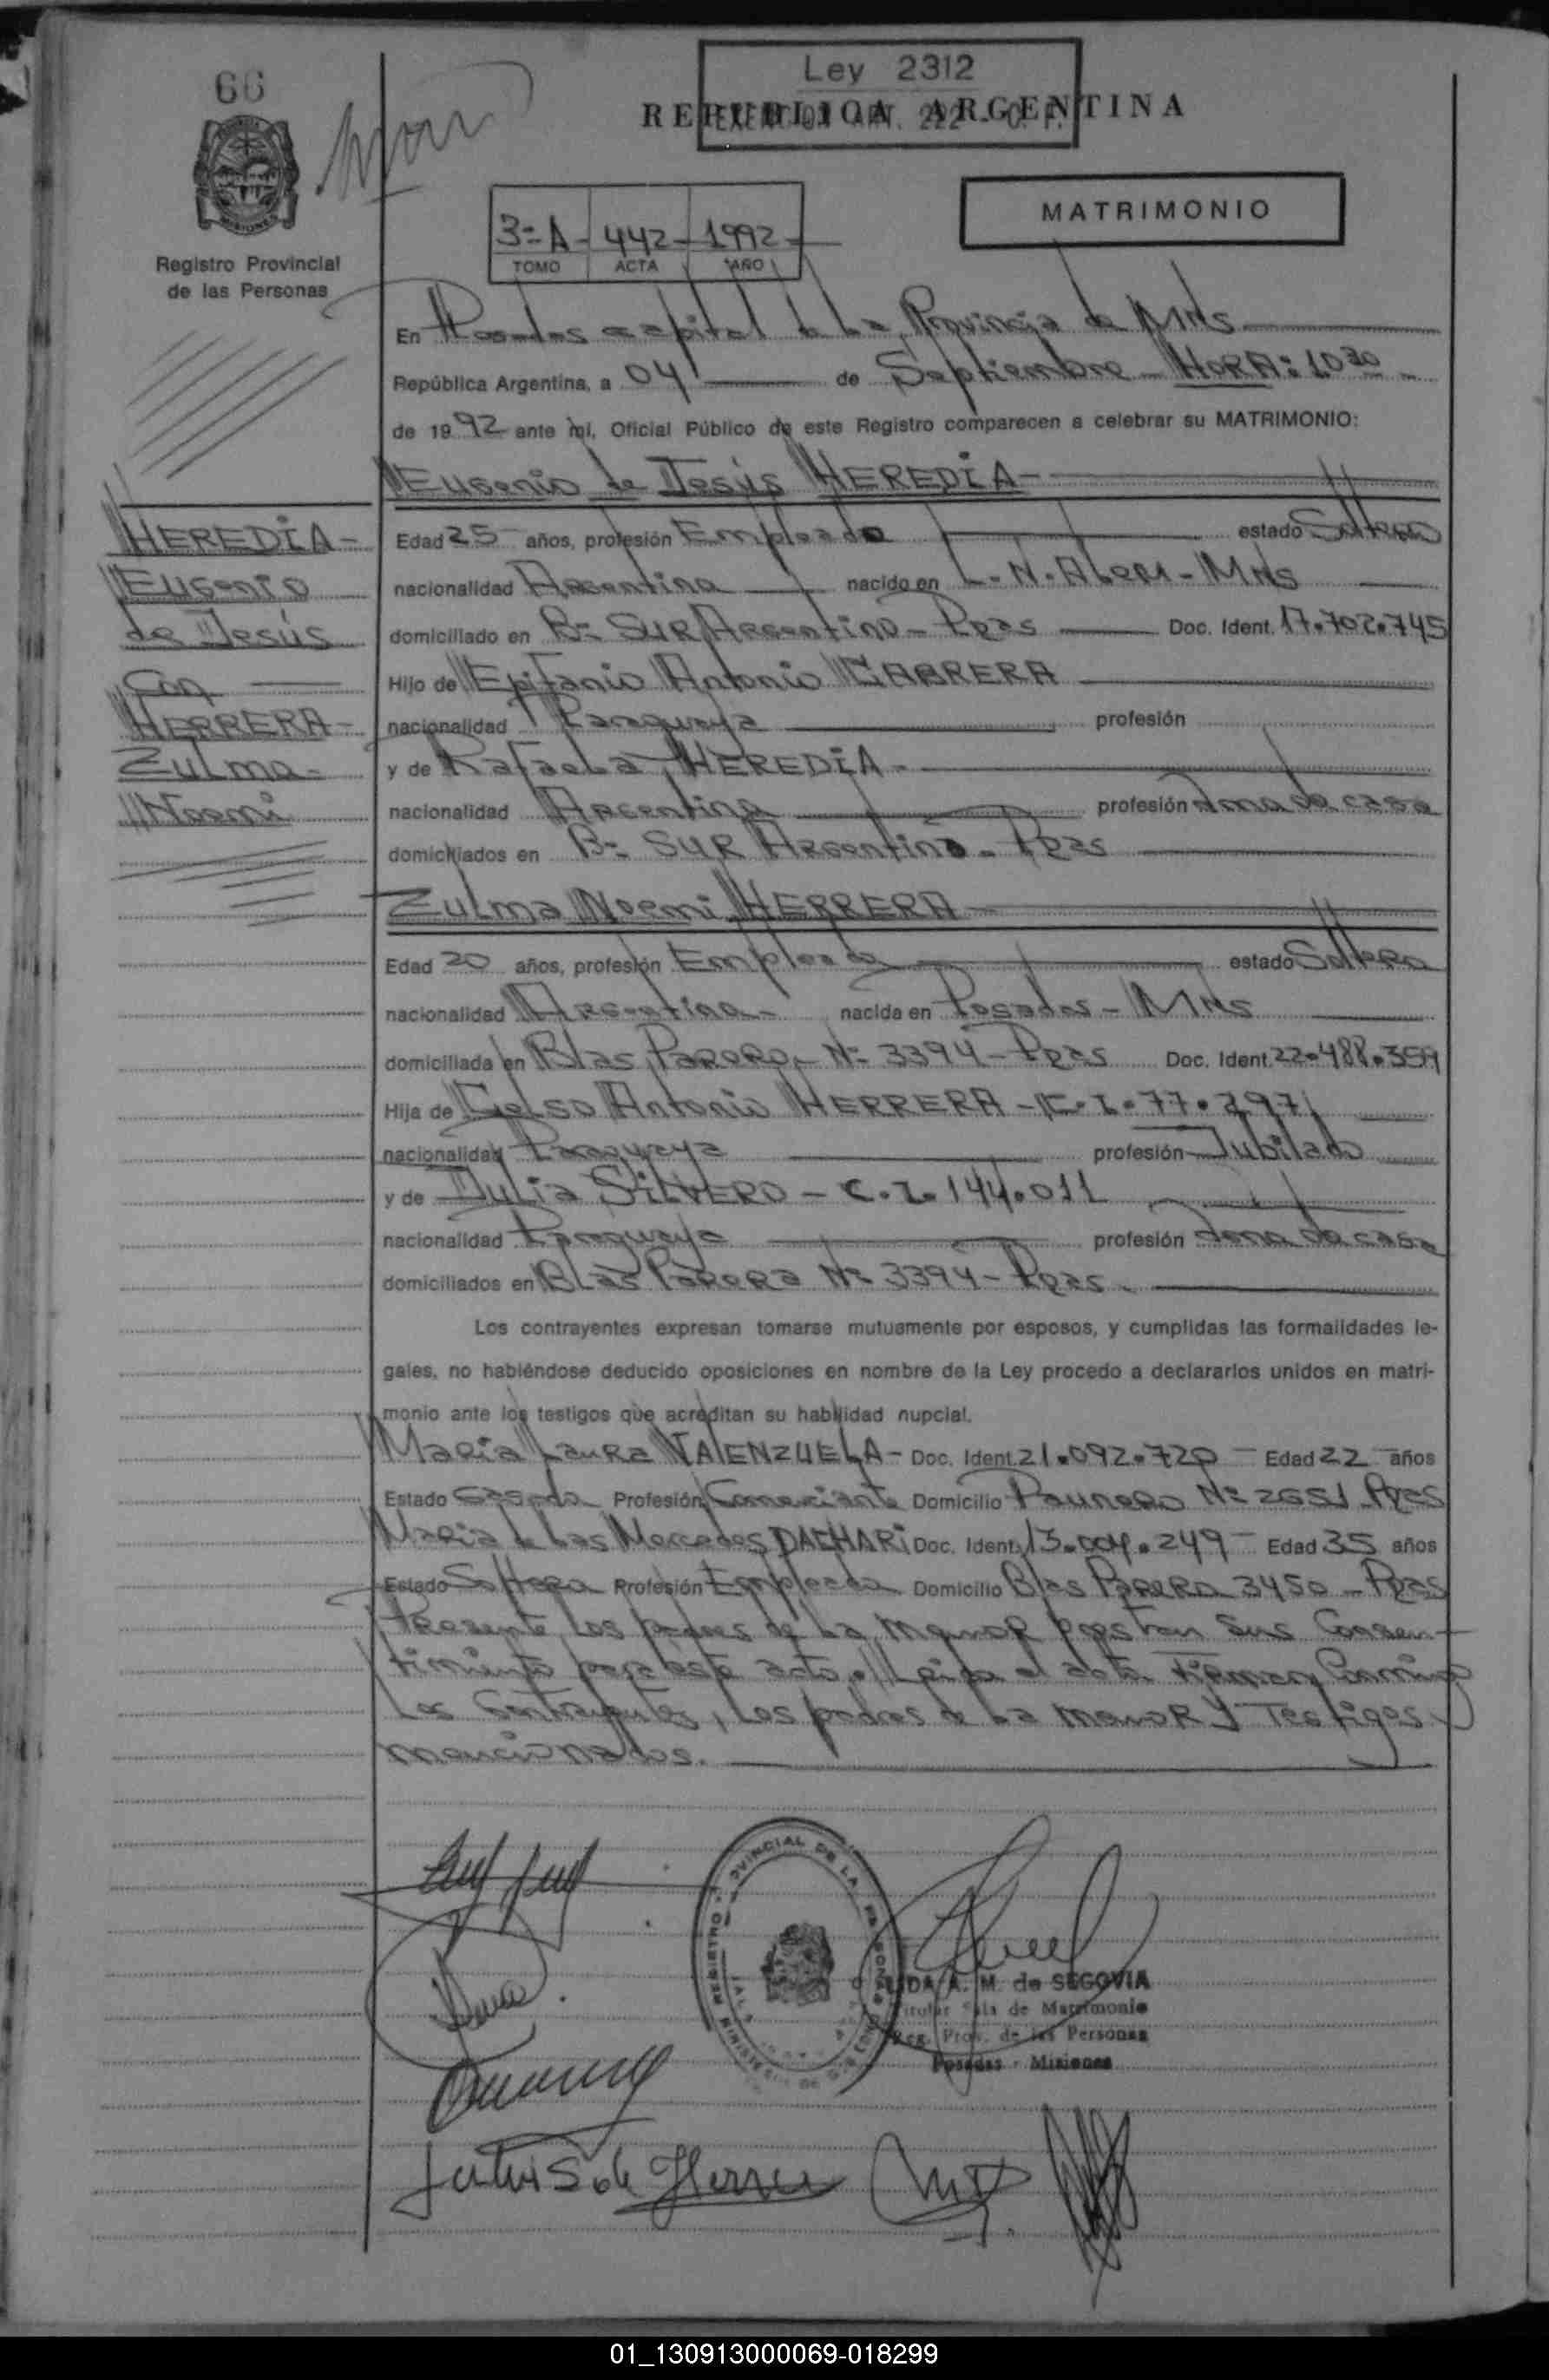 66
Ley 2312
REPUBLICA ARGENTINA
MATRIMONIO
3=A- 442- 1992-
TOMO ACTA AÑO
Registro Provincial
de las Personas
En Posadas capital de La Provincia de MNS
República Argentina, a 04 de Septiembre HORA: 10 30
de 1992 ante mí, Oficial Público de este Registro comparecen a celebrar su MATRIMONIO:
Eugenio de Jesús HEREDIA-
HEREDIA-
Eugenio
de Jesús
Con
HERRERA-
Zulma-
Noemi
Edad 25 años, profesión Empleado estado Soltero
nacionalidad Argentina nacido en L.N.Alem-MNS
domiciliado en B= SUR Argentino-Pdas Doc. Ident. 17.702.745
Hijo de Epifanio Antonio CABRERA
nacionalidad Paraguaya profesión
y de Rafaela HEREDIA-
nacionalidad Argentina profesión Ama de casa
domiciliados en B= SUR Argentino-Pdas
Zulma Noemi HERRERA
Edad 20 años, profesión Empleada estado Soltera
nacionalidad Argentina- nacida en Posadas-MNS
domiciliada en Blas Parera-N= 3394-Pdas Doc. Ident. 22.488.359
Hija de Celso Antonio HERRERA-C.I.77.297
nacionalidad Paraguaya profesión Jubilado
y de Julia SILVERO-C.I.144.011
nacionalidad Paraguaya profesión Ama de casa
domiciliados en Blas Parera N= 3394-Pdas.
Los contrayentes expresan tomarse mutuamente por esposos, y cumplidas las formalidades le-
gales, no habiéndose deducido oposiciones en nombre de la Ley procedo a declararlos unidos en matri-
monio ante los testigos que acreditan su habilidad nupcial.
Maria Laura VALENZUELA- Doc. Ident. 21.092.720 Edad 22 años
Estado Casada Profesión Comerciante Domicilio Paunero N= 2651 Pdas
Maria de Las Mercedes DACHARI Doc. Ident. 13.004.249 Edad 35 años
Estado Soltera Profesión Empleada Domicilio Blas Parera 3450-Pdas
Presente Los padres de La menor prestan sus Consen-
timiento para este acto.//Leida el acta Firman Conmigo
Los Contrayentes, Los padres de La menor y Testigos
mencionados.
A. M. de SEGOVIA
Titular Sala de Matrimonio
Reg. Prov. de las Personas
Posadas - Misiones
01_130913000069-018299